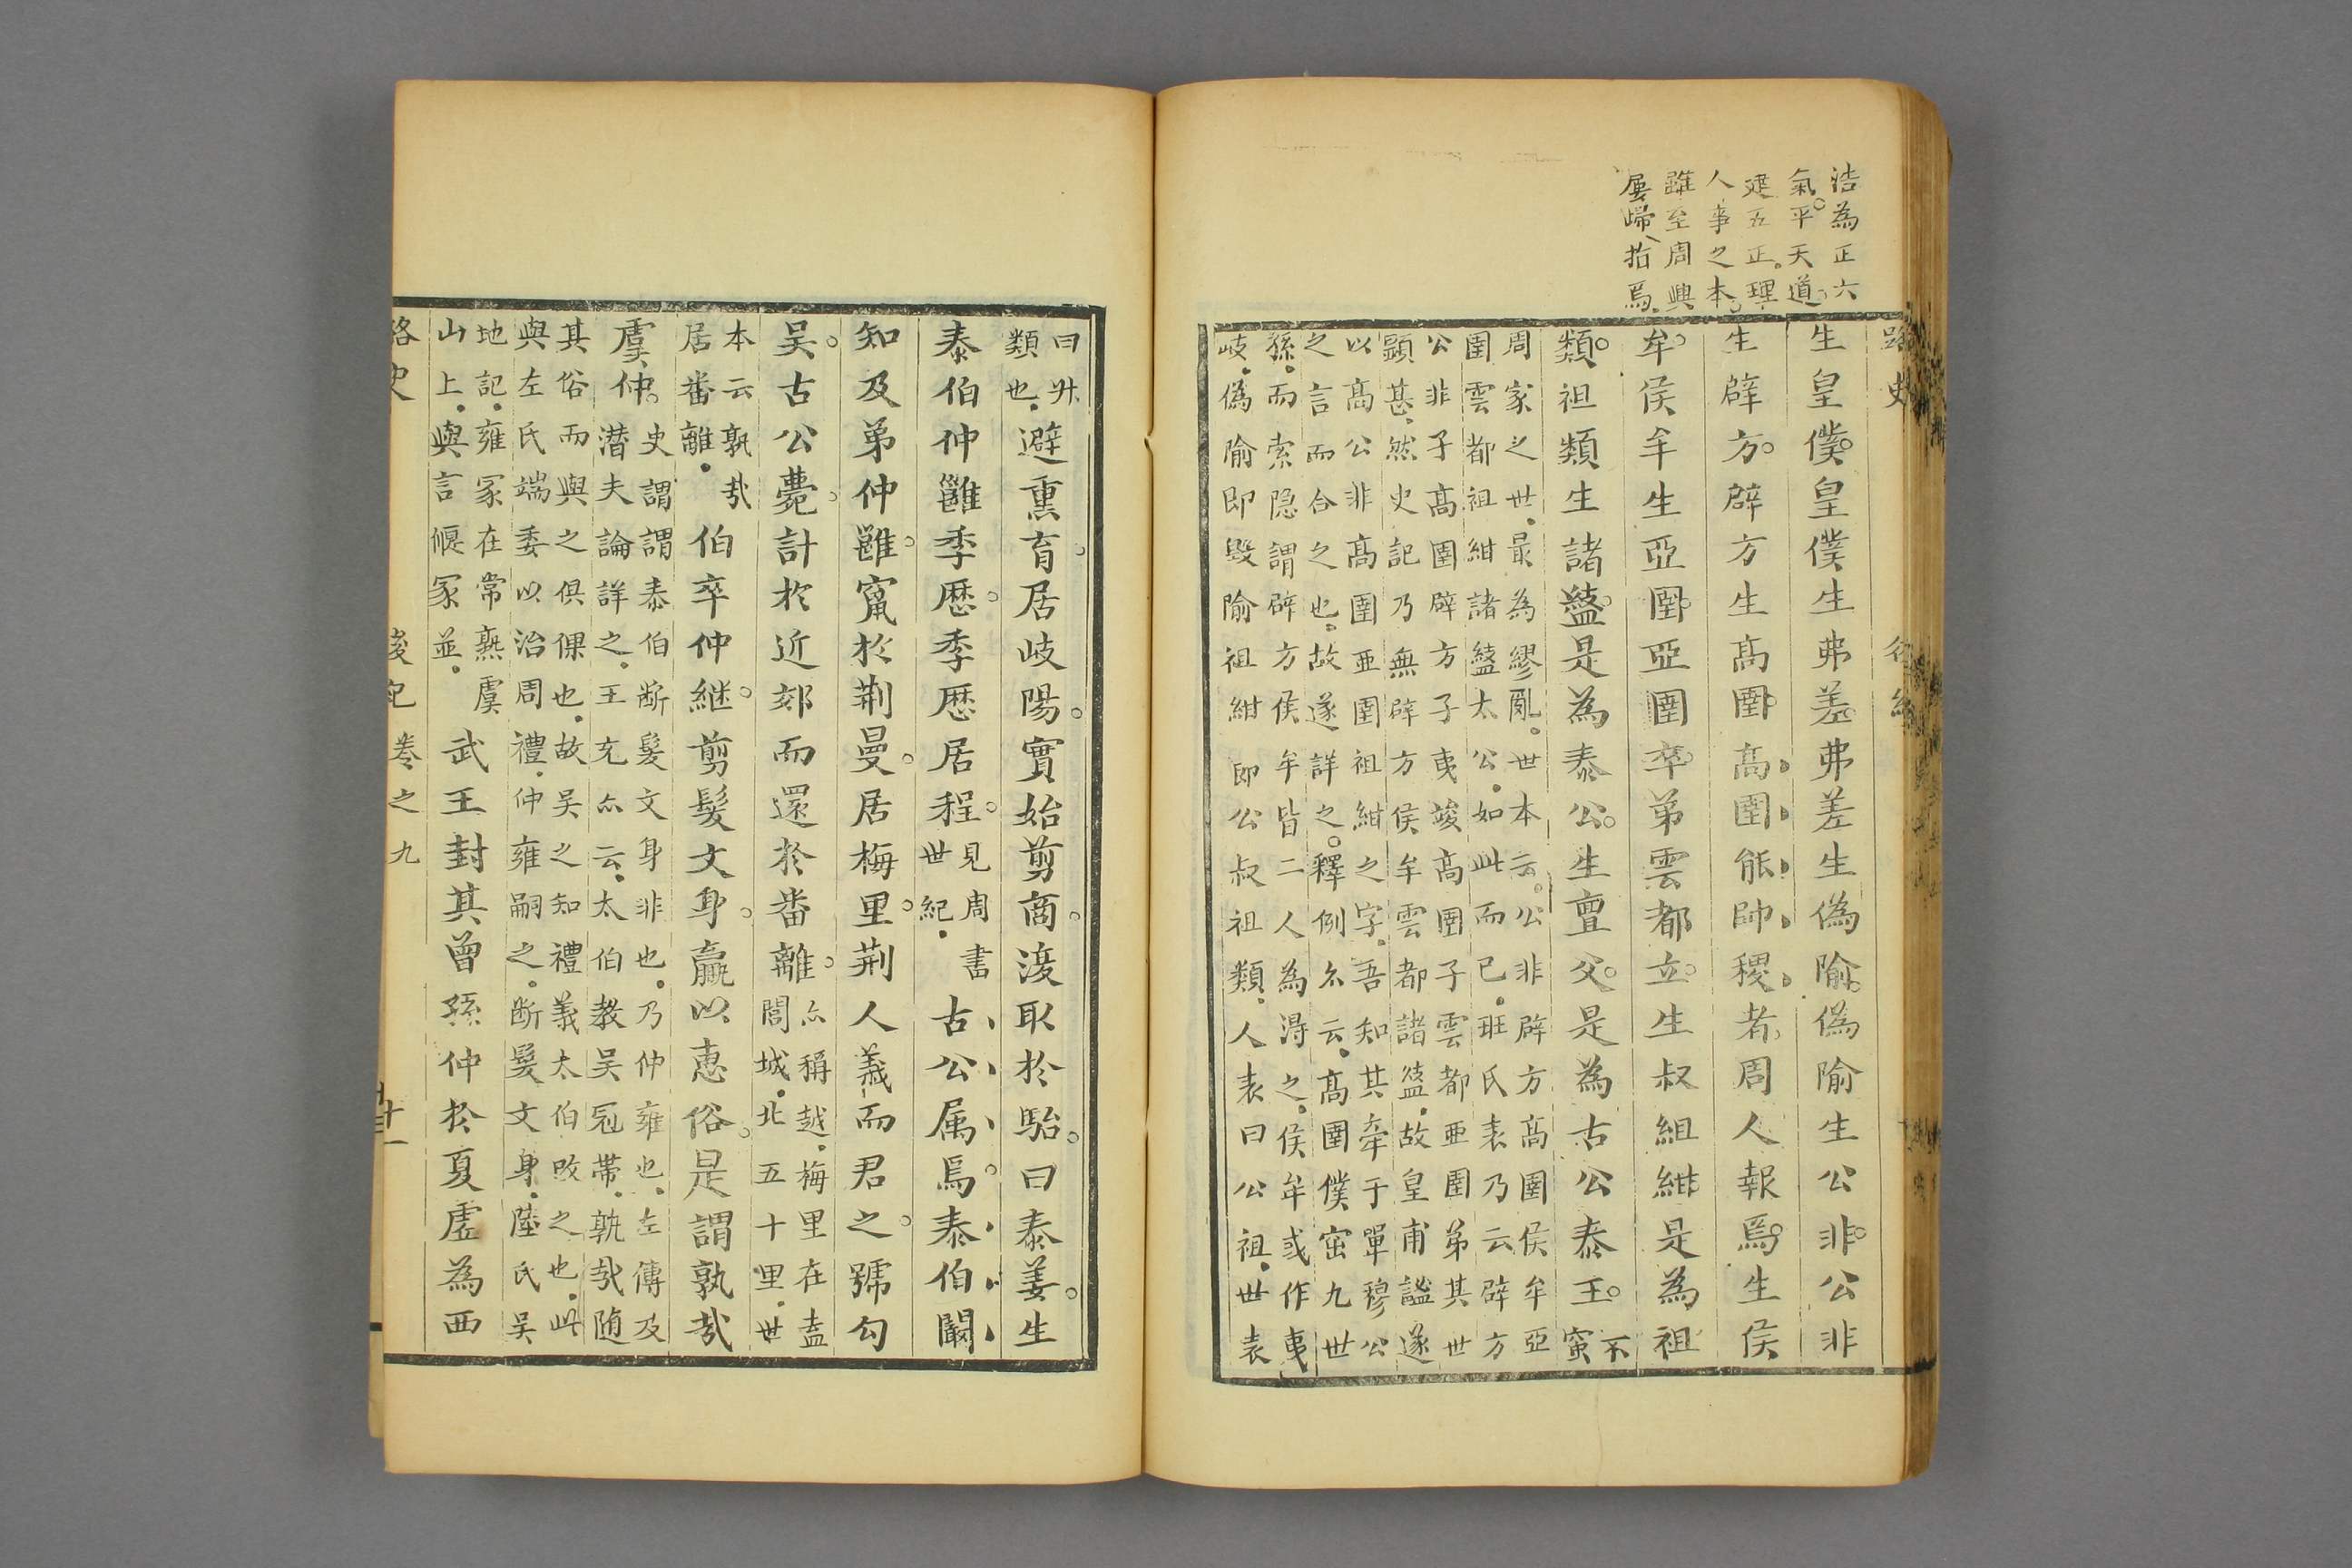 浩為正六
氣平天道
建五正理
人事之本
雖至周興
屢歸指焉
路史
生皇僕皇僕生弗差弗差生偽隃偽隃生公非公非
生辟方辟方生高圉高圉能帥稷者周人報焉生侯
牟侯牟生亞圉亞圉卒弟雲都立生叔組紺是為祖
類祖類生諸盩是為泰公生亶父是為古公泰王不
窋
周家之世最為繆亂世本云公非辟方高圉侯牟亞
圉雲都祖紺諸盩太公如此而已班氏表乃云辟方
公非子高圉辟方子夷竢高圉子雲都亞圉弟其世
顯甚然史記乃無辟方侯牟雲都諸盩故皇甫謐遂
以高公非高圉亞圉祖紺之字吾知其牽于單穆公
之言而合之也故遂詳之釋例亦云高圉僕窋九世
孫而索隐謂辟方侯牟皆二人為淂之侯牟或作夷
岐偽隃即毀隃祖紺即公叔祖類人表曰公祖世表
曰叔
類也避熏育居岐陽實始剪商渡取於駘曰泰姜生
泰伯仲雝季厯季厯居程見周書
世紀古公属焉泰伯闞
知及弟仲雝竄於荆曼居梅里荆人義而君之號勾
吴古公薨計於近郊而還於番離亦稱越梅里在盍
閭城北五十里世
本云孰哉
居番離伯卒仲継剪髮文身贏以恵俗是謂孰哉
虞仲史謂謂泰伯断髮文身非也乃仲雍也左傳及
潜夫論詳之王充亦云太伯教吴冠帶孰哉随
其俗而與之俱倮也故吴之知禮義太伯改之也此
與左氏端委以治周禮仲雍嗣之断髮文身陸氏吴
地記雍冢在常熟虞
山上與言偃冢並武王封其曾孫仲於夏虗為西
路史
後紀
巻之九
十一